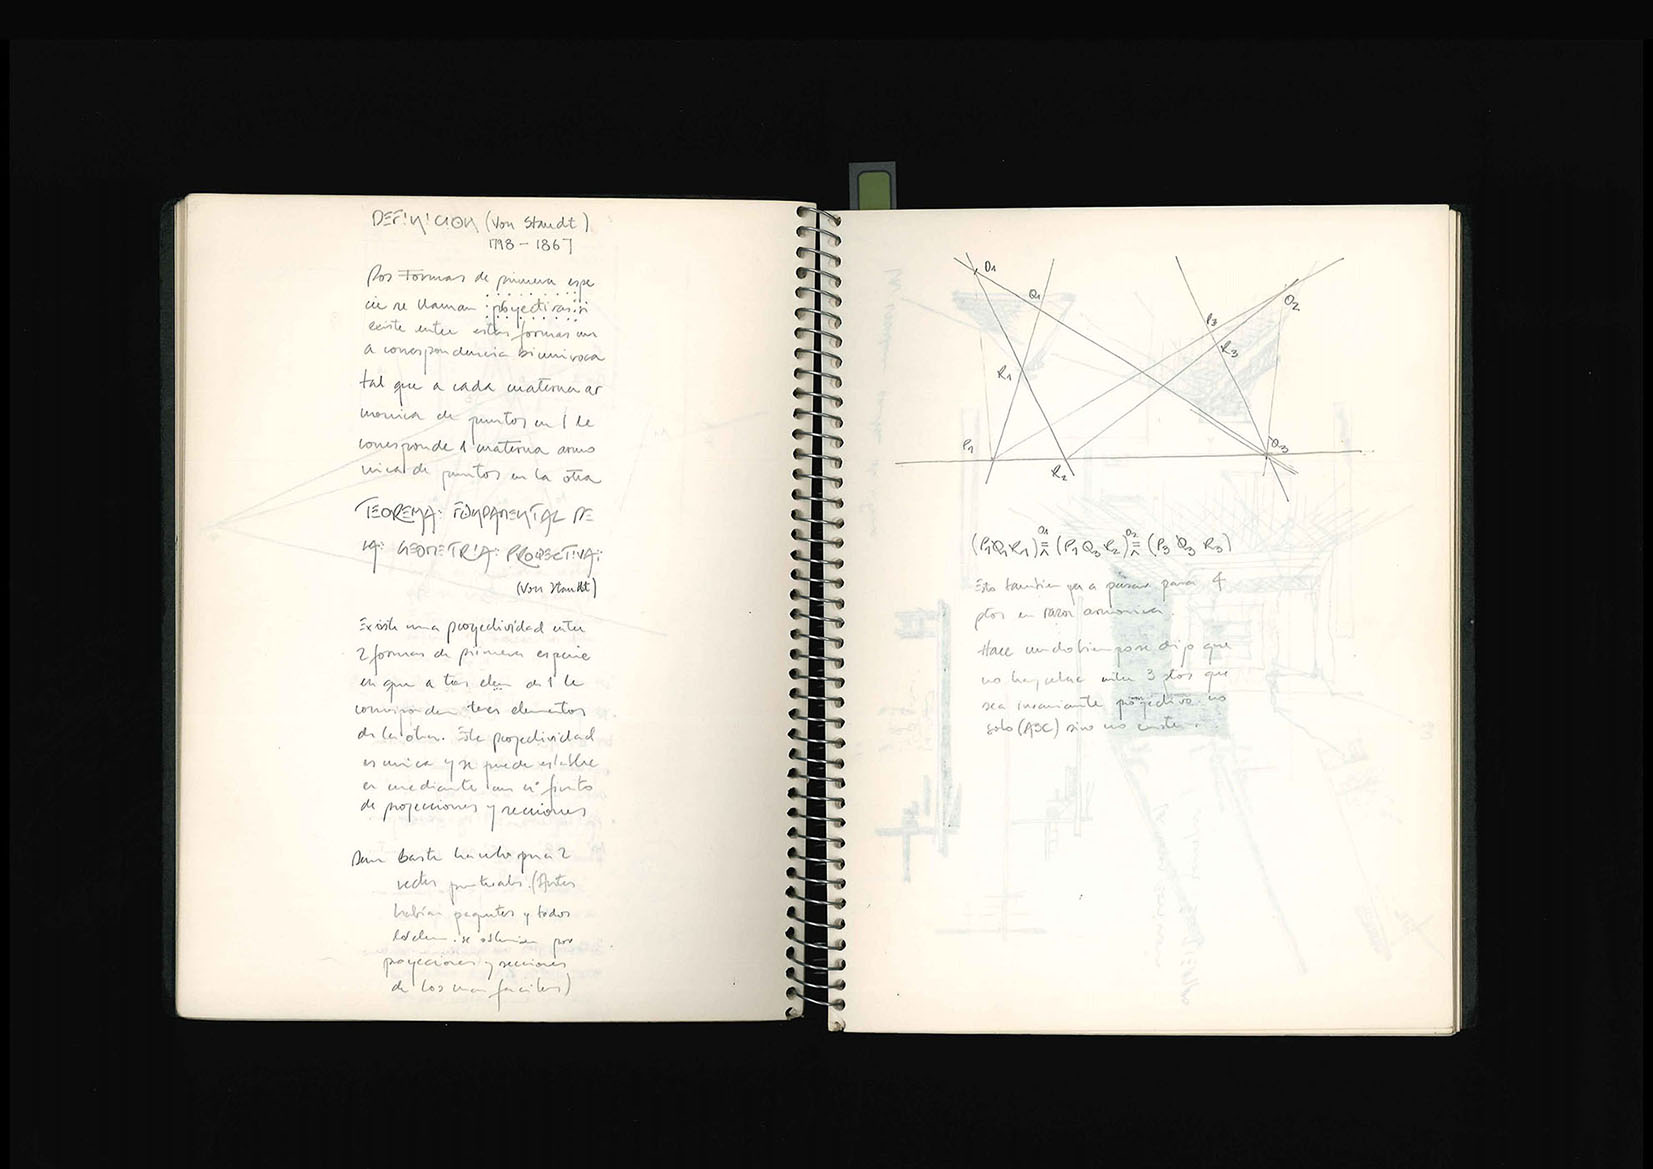 DEFINICION (Von Staudt)
1798 - 1867
Dos Formas de primera espe
cie se llaman proyectivas si
existe entre estas formas un
a correspondencia biunivoca
tal que a cada cuaterna ar
monica de puntos en 1 le
corresponde 1 cuaterna armo
nica de puntos en la otra
TEOREMA FUNDAMENTAL DE
LA GEOMETRIA PROYECTIVA
(Von Staudt)
Existe una proyectividad entre
2 formas de primera especie
en que a tres elem de 1 le
corresponden tres elementos
de la otra. Esta proyectividad
es unica y se puede establec
er mediante un nº finito
de proyecciones y secciones
Dem Basta hacerlo para 2
rectas puntuales. (Antes
habian paquetes y todos
se obtienen por
proyecciones y secciones
de los mas faciles)
O1
Q1
O2
P3
R3
R1
P1
R2
Q3
(P1 Q1 R1) O1 ⌅ (P1 Q3 R2) O2 ⌅ (P3 Q3 R3)
Esto tambien va a pasar para 4
ptos en razon armonica.
Hace un tiempo se dijo que
no hay entre 3 ptos que
sea invariante proyectivo no
solo (ABC) sino no existe.